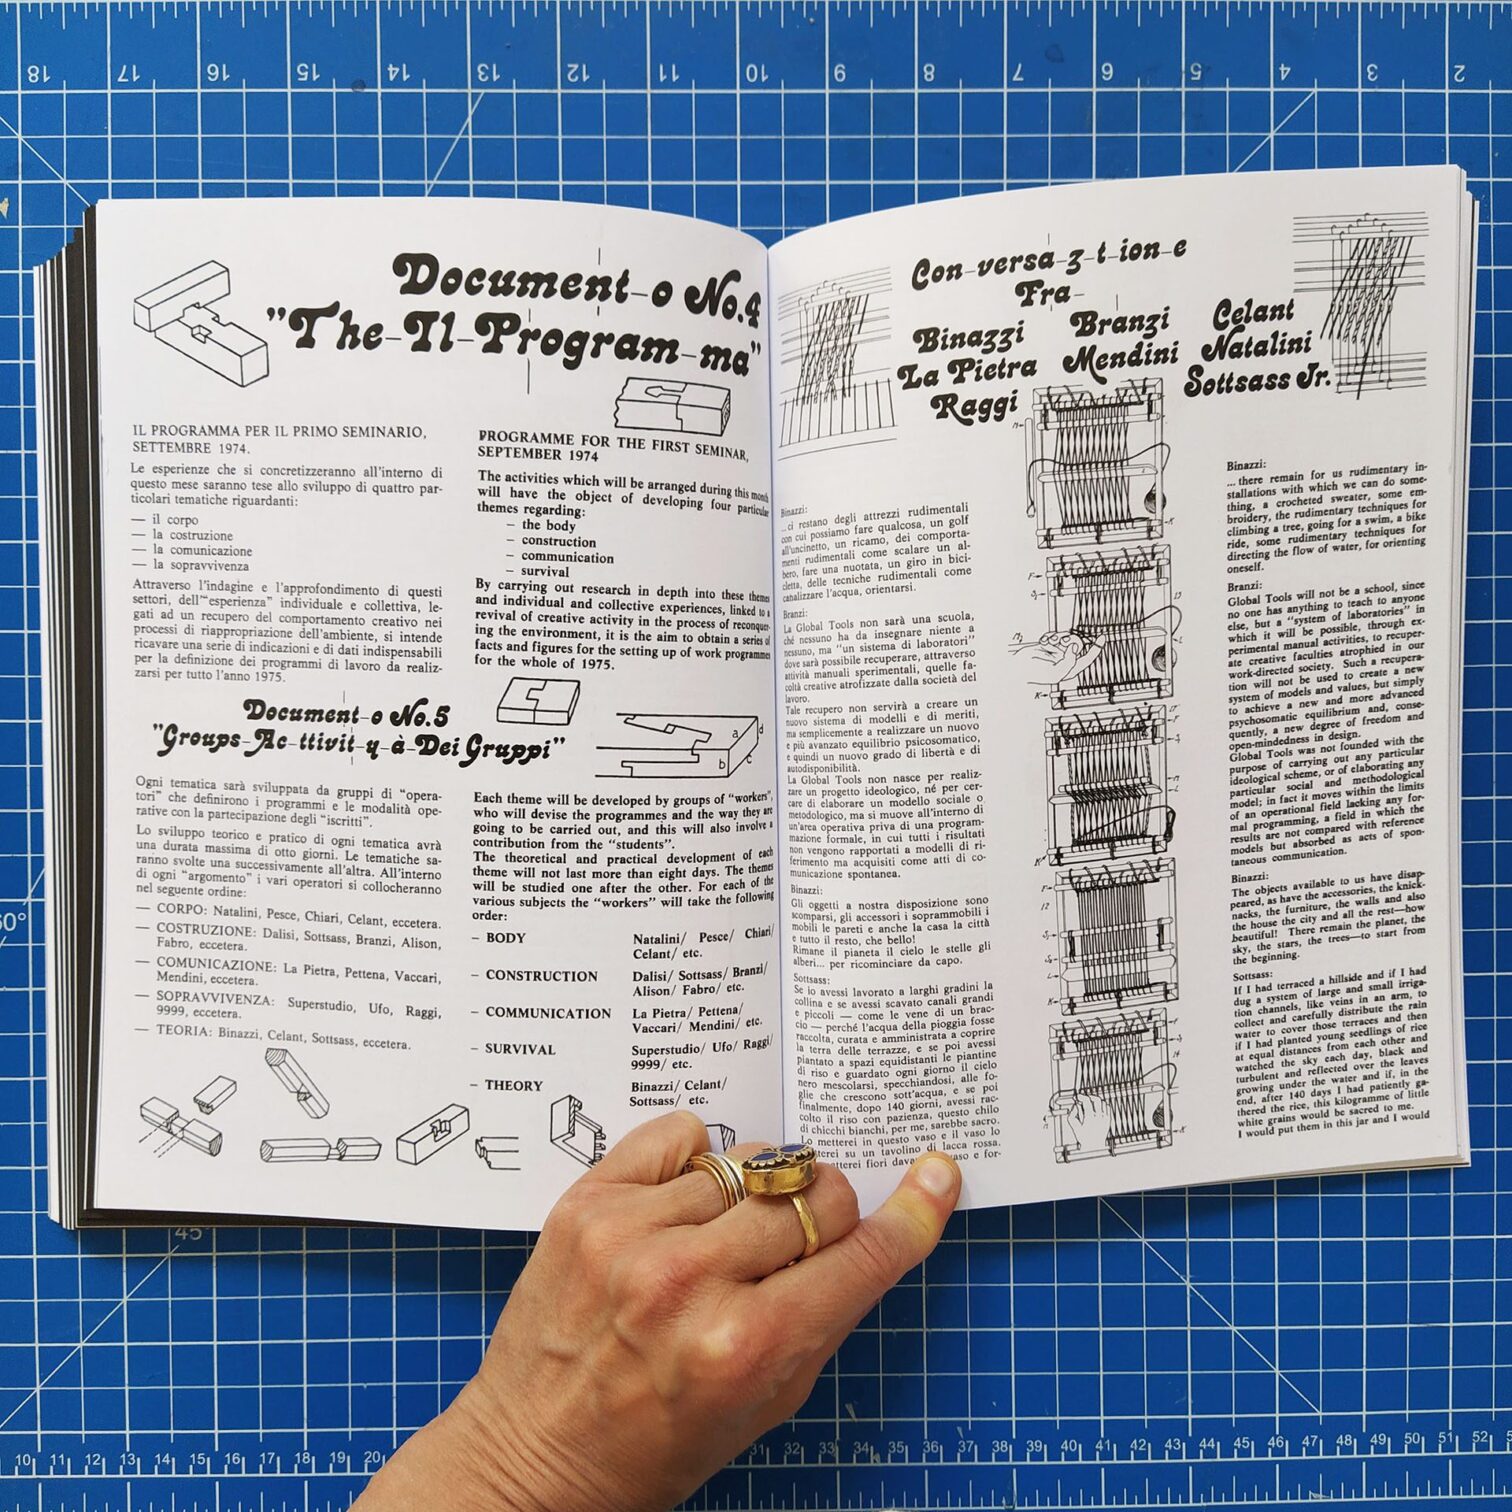 Document-o No.4
"The-Il-Program-ma"
IL PROGRAMMA PER IL PRIMO SEMINARIO,
SETTEMBRE 1974.
Le esperienze che si concretizzeranno all'interno di
questo mese saranno tese allo sviluppo di quattro par-
ticolari tematiche riguardanti:
— il corpo
— la costruzione
— la comunicazione
— la sopravvivenza
Attraverso l'indagine e l'approfondimento di questi
settori, dell'"esperienza" individuale e collettiva, le-
gati ad un recupero del comportamento creativo nei
processi di riappropriazione dell'ambiente, si intende
ricavare una serie di indicazioni e di dati indispensabili
per la definizione dei programmi di lavoro da realiz-
zarsi per tutto l'anno 1975.
PROGRAMME FOR THE FIRST SEMINAR,
SEPTEMBER 1974
The activities which will be arranged during this month
will have the object of developing four particular
themes regarding:
– the body
– construction
– communication
– survival
By carrying out research in depth into these themes
and individual and collective experiences, linked to a
revival of creative activity in the process of reconquer-
ing the environment, it is the aim to obtain a series of
facts and figures for the setting up of work programmes
for the whole of 1975.
Document-o No.5
"Groups-Ac-ttivit-y-à-Dei Gruppi"
a
b
c
d
Ogni tematica sarà sviluppata da gruppi di "opera-
tori" che definirono i programmi e le modalità ope-
rative con la partecipazione degli "iscritti".
Lo sviluppo teorico e pratico di ogni tematica avrà
una durata massima di otto giorni. Le tematiche sa-
ranno svolte una successivamente all'altra. All'interno
di ogni "argomento" i vari operatori si collocheranno
nel seguente ordine:
— CORPO: Natalini, Pesce, Chiari, Celant, eccetera.
— COSTRUZIONE: Dalisi, Sottsass, Branzi, Alison,
Fabro, eccetera.
— COMUNICAZIONE: La Pietra, Pettena, Vaccari,
Mendini, eccetera.
— SOPRAVVIVENZA: Superstudio, Ufo, Raggi,
9999, eccetera.
— TEORIA: Binazzi, Celant, Sottsass, eccetera.
Each theme will be developed by groups of "workers",
who will devise the programmes and the way they are
going to be carried out, and this will also involve a
contribution from the "students".
The theoretical and practical development of each
theme will not last more than eight days. The themes
will be studied one after the other. For each of the
various subjects the "workers" will take the following
order:
– BODY Natalini/ Pesce/ Chiari/
Celant/ etc.
– CONSTRUCTION Dalisi/ Sottsass/ Branzi/
Alison/ Fabro/ etc.
– COMMUNICATION La Pietra/ Pettena/
Vaccari/ Mendini/ etc.
– SURVIVAL Superstudio/ Ufo/ Raggi/
9999/ etc.
– THEORY Binazzi/ Celant/
Sottsass/ etc.
Con-versa-z-t-ion-e
Fra-
Binazzi
La Pietra
Raggi
Branzi
Mendini
Celant
Natalini
Sottsass Jr.
Binazzi:
...ci restano degli attrezzi rudimentali
con cui possiamo fare qualcosa, un golf
all'uncinetto, un ricamo, dei comporta-
menti rudimentali come scalare un al-
bero, fare una nuotata, un giro in bici-
cletta, delle tecniche rudimentali come
canalizzare l'acqua, orientarsi.
Branzi:
La Global Tools non sarà una scuola,
ché nessuno ha da insegnare niente a
nessuno, ma "un sistema di laboratori"
dove sarà possibile recuperare, attraverso
attività manuali sperimentali, quelle fa-
coltà creative atrofizzate dalla società del
lavoro.
Tale recupero non servirà a creare un
nuovo sistema di modelli e di meriti,
ma semplicemente a realizzare un nuovo
e più avanzato equilibrio psicosomatico,
e quindi un nuovo grado di libertà e di
autodisponibilità.
La Global Tools non nasce per realiz-
zare un progetto ideologico, né per cer-
care di elaborare un modello sociale o
metodologico, ma si muove all'interno di
un'area operativa priva di una program-
mazione formale, in cui tutti i risultati
non vengono rapportati a modelli di ri-
ferimento ma acquisiti come atti di co-
municazione spontanea.
Binazzi:
Gli oggetti a nostra disposizione sono
scomparsi, gli accessori i soprammobili i
mobili le pareti e anche la casa la città
e tutto il resto, che bello!
Rimane il pianeta il cielo le stelle gli
alberi... per ricominciare da capo.
Sottsass:
Se io avessi lavorato a larghi gradini la
collina e se avessi scavato canali grandi
e piccoli — come le vene di un brac-
cio — perché l'acqua della pioggia fosse
raccolta, curata e amministrata a coprire
la terra delle terrazze, e se poi avessi
piantato a spazi equidistanti le piantine
di riso e guardato ogni giorno il cielo
nero mescolarsi, specchiandosi, alle fo-
glie che crescono sott'acqua, e se poi
finalmente, dopo 140 giorni, avessi rac-
colto il riso con pazienza, questo chilo
di chicchi bianchi, per me, sarebbe sacro.
Lo metterei in questo vaso e il vaso lo
tterei su un tavolino di lacca rossa.
etterei fiori dava vaso e for-
Binazzi:
... there remain for us rudimentary in-
stallations with which we can do some-
thing, a crocheted sweater, some em-
broidery, the rudimentary techniques for
climbing a tree, going for a swim, a bike
ride, some rudimentary techniques for
directing the flow of water, for orienting
oneself.
Branzi:
Global Tools will not be a school, since
no one has anything to teach to anyone
else, but a "system of laboratories" in
which it will be possible, through ex-
perimental manual activities, to recuper-
ate creative faculties atrophied in our
work-directed society. Such a recupera-
tion will not be used to create a new
system of models and values, but simply
to achieve a new and more advanced
psychosomatic equilibrium and, conse-
quently, a new degree of freedom and
open-mindedness in design.
Global Tools was not founded with the
purpose of carrying out any particular
ideological scheme, or of elaborating any
particular social and methodological
model; in fact it moves within the limits
of an operational field lacking any for-
mal programming, a field in which the
results are not compared with reference
models but absorbed as acts of spon-
taneous communication.
Binazzi:
The objects available to us have disap-
peared, as have the accessories, the knick-
nacks, the furniture, the walls and also
the house the city and all the rest—how
beautiful! There remain the planet, the
sky, the stars, the trees—to start from
the beginning.
Sottsass:
If I had terraced a hillside and if I had
dug a system of large and small irriga-
tion channels, like veins in an arm, to
collect and carefully distribute the rain
water to cover those terraces and then
if I had planted young seedlings of rice
at equal distances from each other and
watched the sky each day, black and
turbulent and reflected over the leaves
growing under the water and if, in the
end, after 140 days I had patiently ga-
thered the rice, this kilogramme of little
white grains would be sacred to me.
I would put them in this jar and I would
18 17 16 15 14 13 12 11 10 9 8 7 6 5 4 3 2
60°
45°
10 11 12 13 14 15 16 17 18 19 20 31 32 33 34 35 36 37 38 39 40 41 42 43 44 45 46 47 48 49 50 51 52